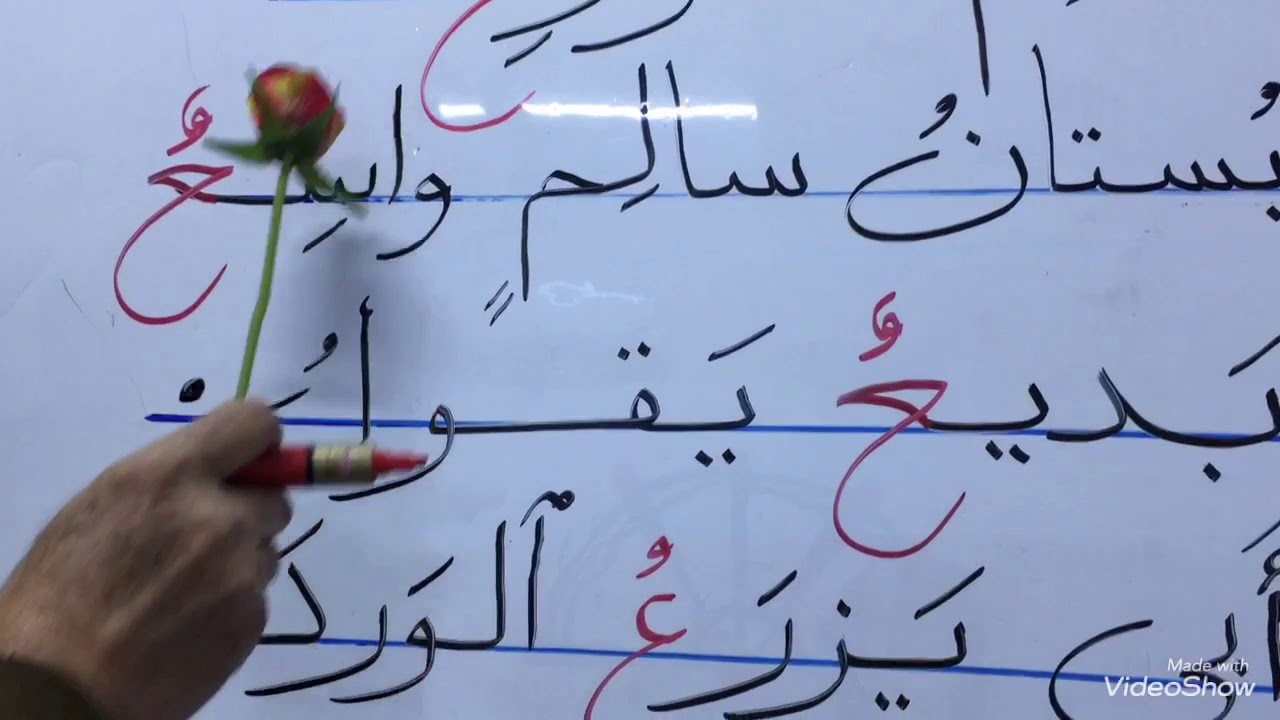 بُستانُ سالِمٍ واسِعٌ
بَديعٌ يَقولُ
أَبي يَزرَعُ ٱلوَردَ
Made with
VideoShow